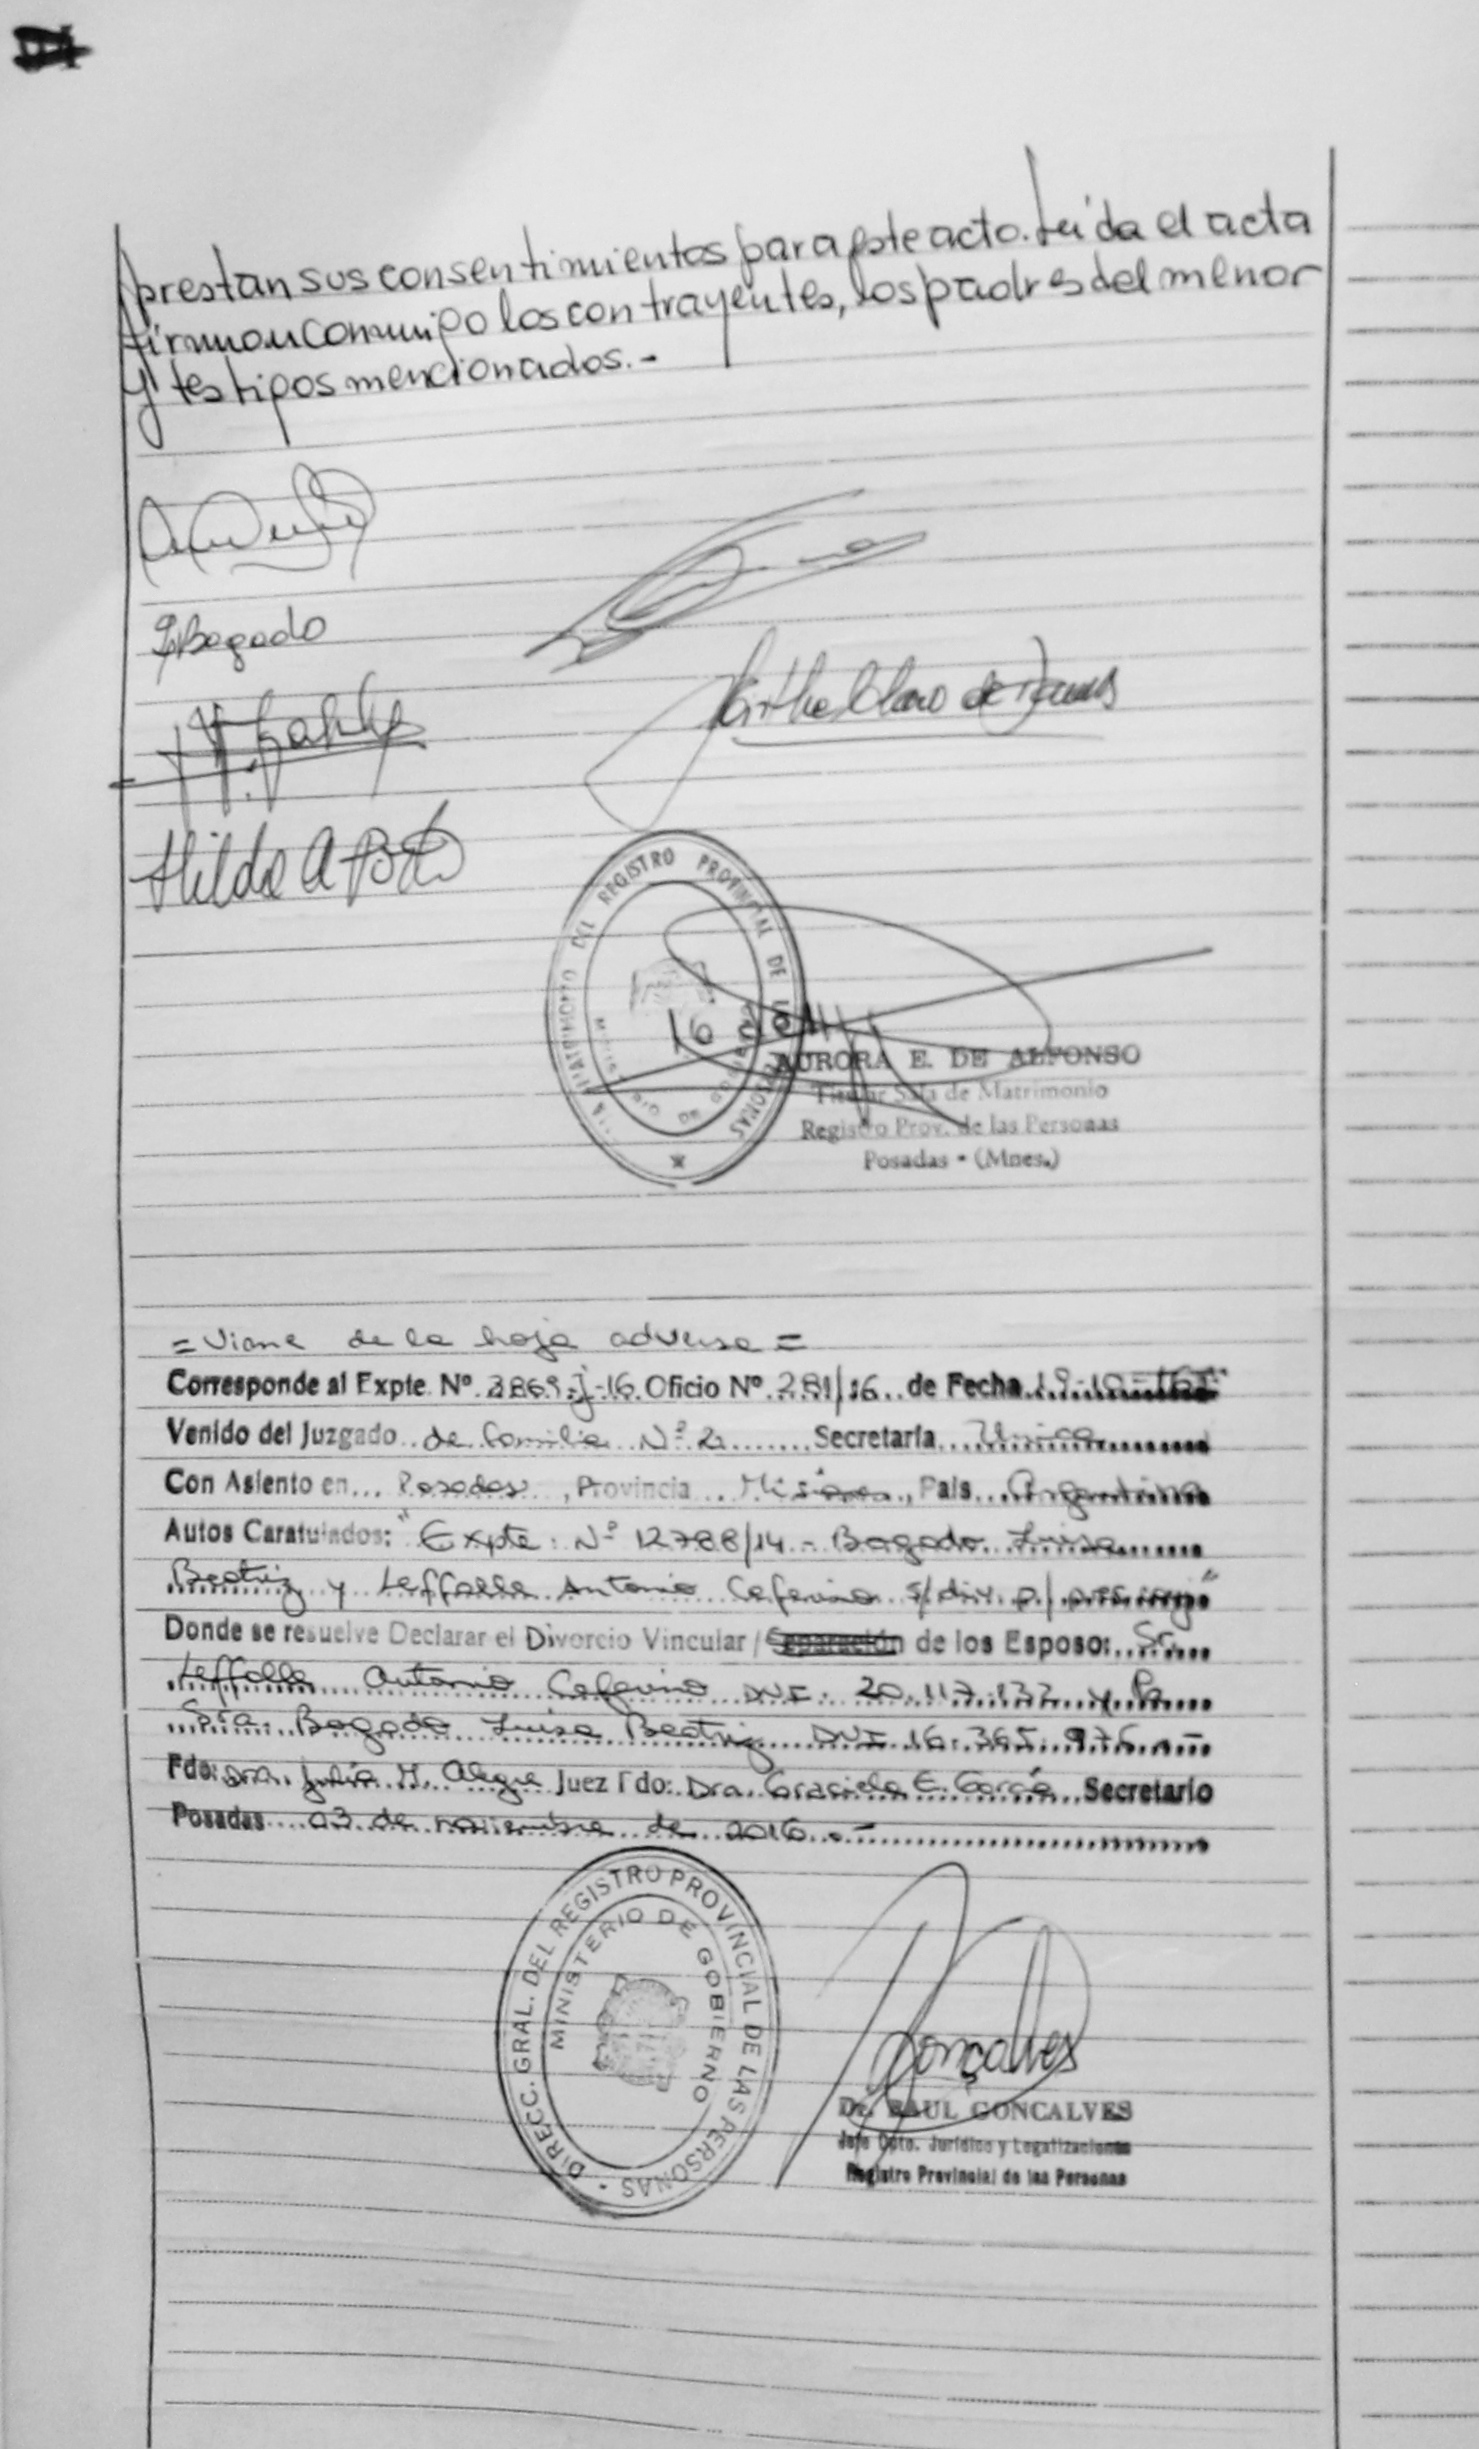 prestan sus consentimientos para este acto. Leída el acta
firman conmigo los contrayentes, los padres del menor
y testigos mencionados.-
Bogado
Hilda A
Mirtha Claro de
REGISTRO PROVINCIAL DE LAS PERSONAS
16
AURORA E. DE ALFONSO
Titular Sala de Matrimonio
Registro Prov. de las Personas
Posadas - (Mnes.)
= Viene de la hoja adversa =
Corresponde al Expte. Nº 3869-J-16 Oficio Nº 281/16 de Fecha 19-10-16
Venido del Juzgado de Familia Nº 2 Secretaría Única
Con Asiento en Posadas, Provincia Misiones, País Argentina
Autos Caratulados: "Expte. Nº 12788/14 - Bogado Luisa
Beatriz y Leffalle Antonio Ceferino s/ div. p/ pres. conj"
Donde se resuelve Declarar el Divorcio Vincular / Separación de los Esposo: Sr.
Leffalle Antonio Ceferino DNI. 20.117.132 y la
Sra. Bogado Luisa Beatriz DNI 16.365.976.-
Fdo: Dra. Julia M. Alegre Juez Fdo: Dra. Graciela E. García Secretario
Posadas 03 de noviembre de 2016.-
DIRECC. GRAL. DEL REGISTRO PROVINCIAL DE LAS PERSONAS
MINISTERIO DE GOBIERNO
Gonçalves
Dr. RAUL GONCALVES
Jefe Dpto. Jurídico y Legalizaciones
Registro Provincial de las Personas